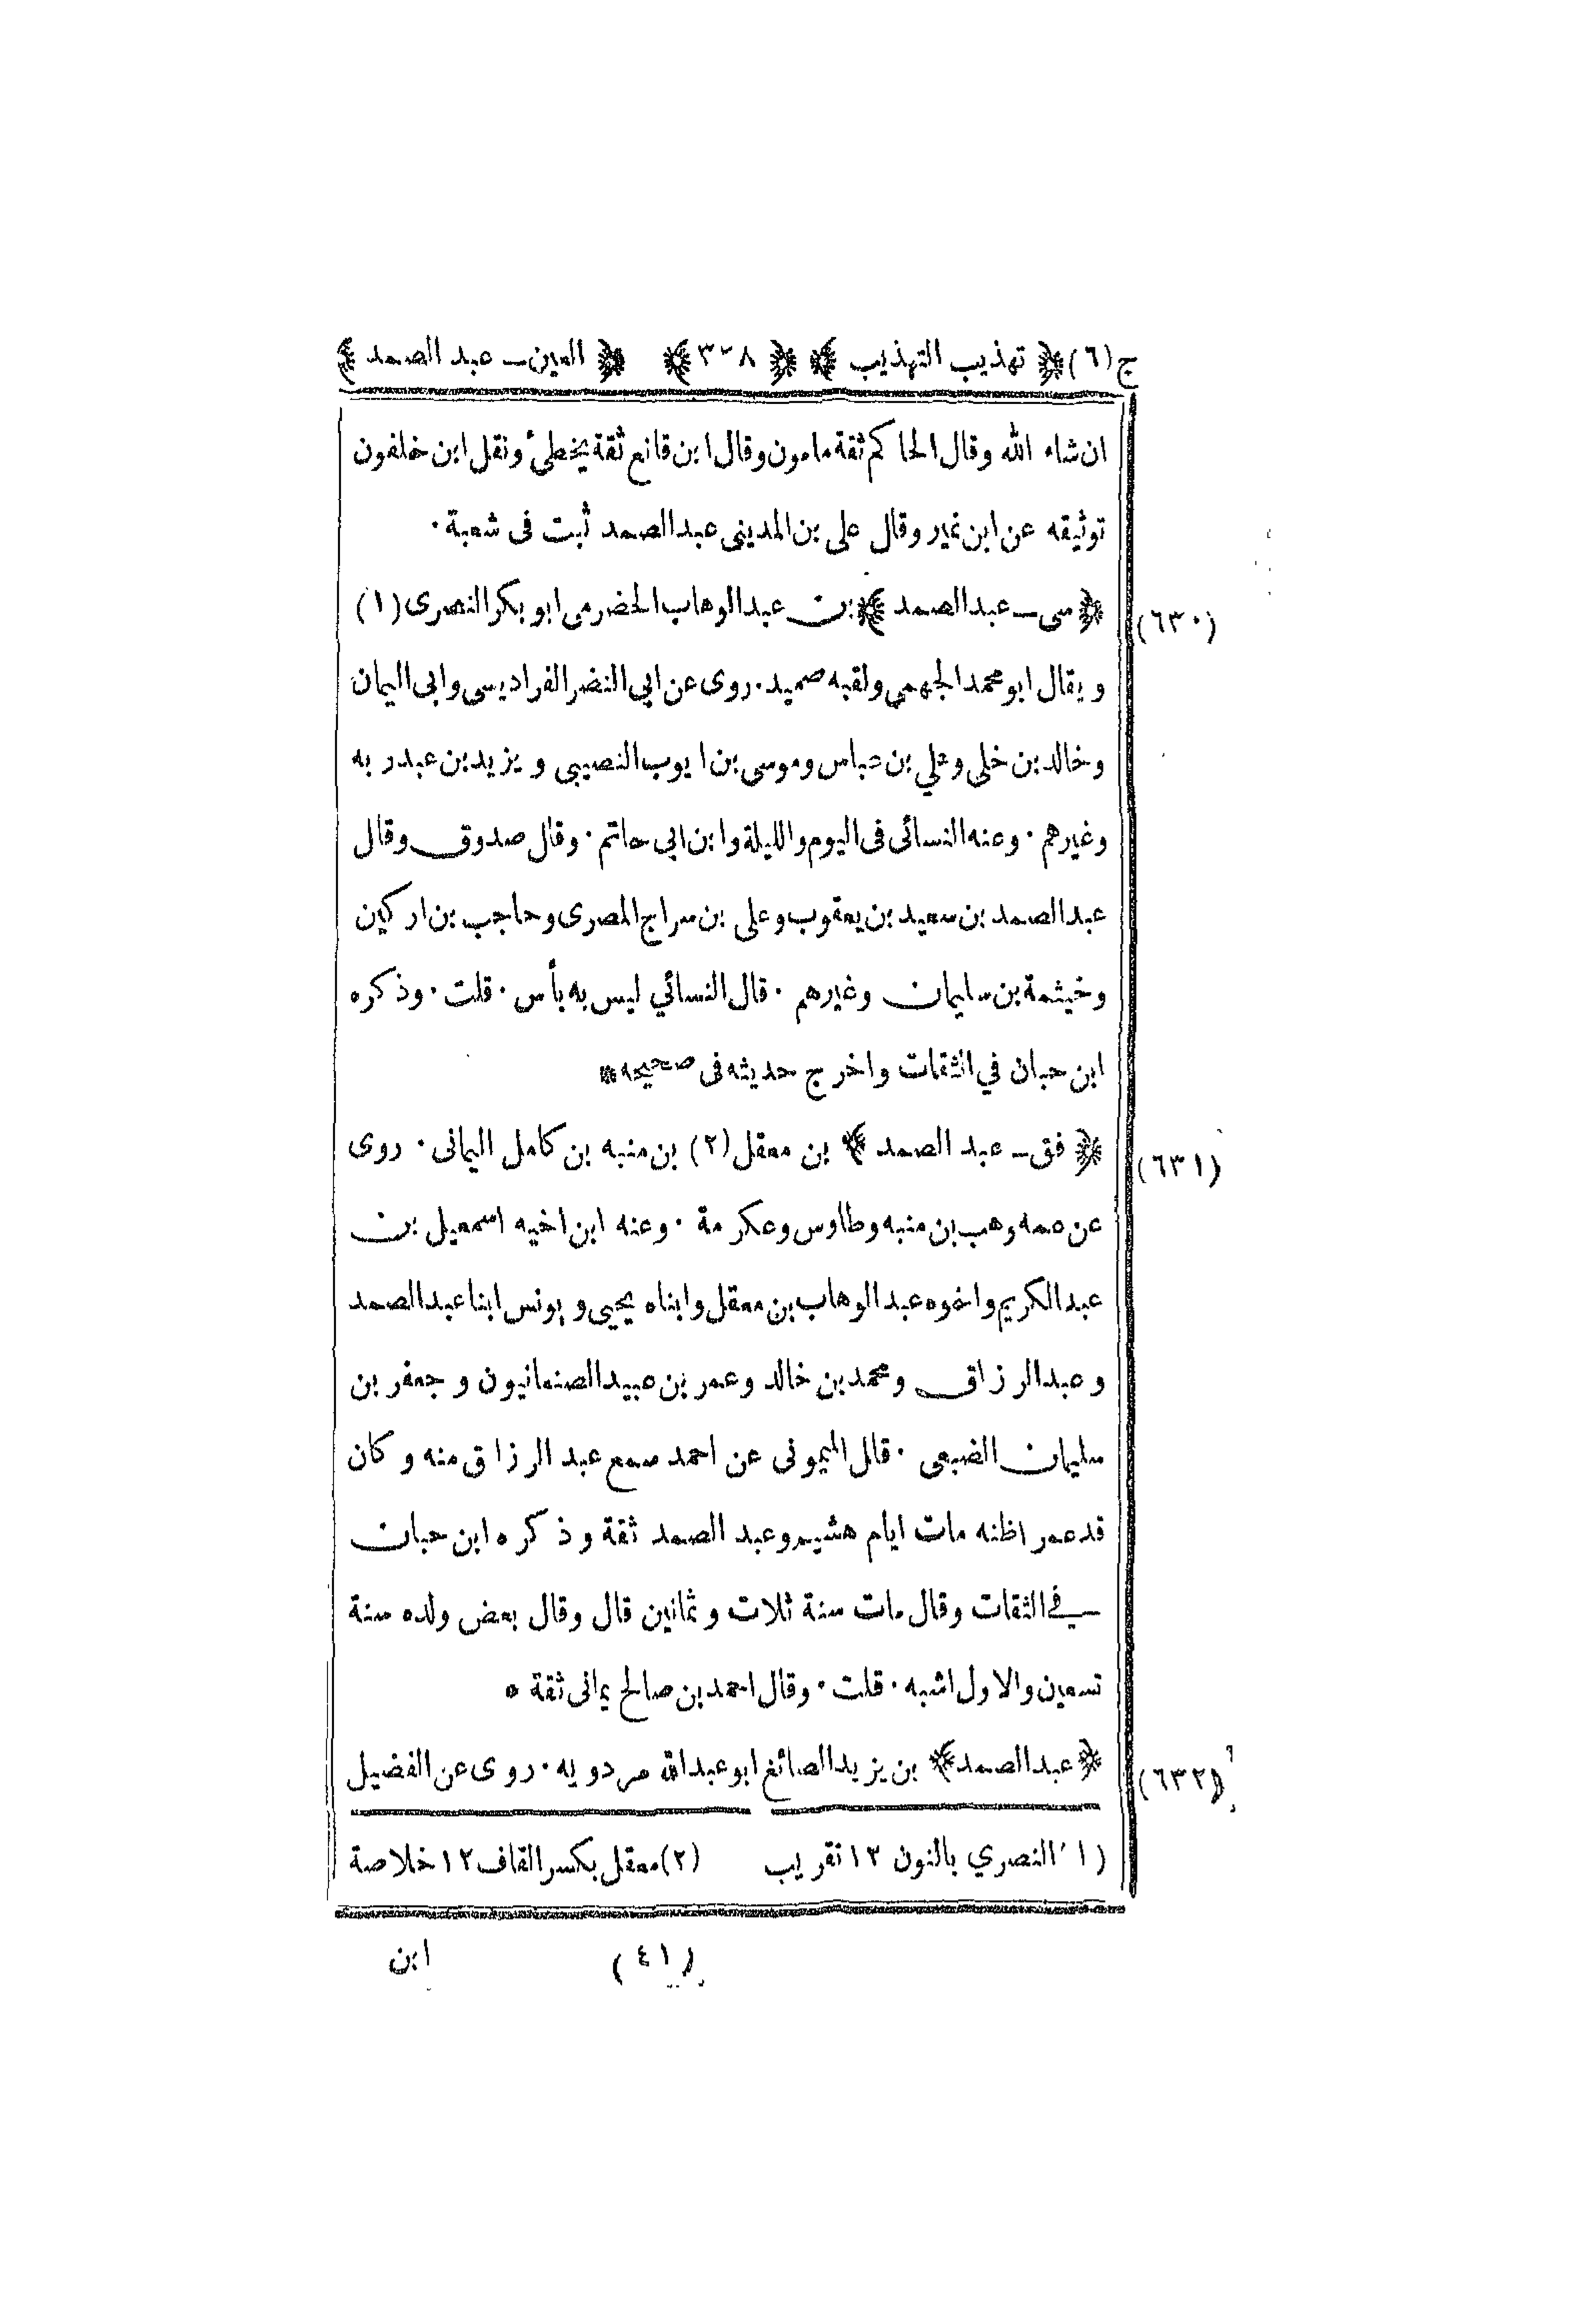 ج(٦) ﴿ تهذيب التهذيب ﴾ ﴿ ٣٢٨ ﴾ ﴿ العين ـ عبد الصمد ﴾
ان شاء الله وقال الحاكم ثقة مامون وقال ابن قانع ثقة يخطئ ونقل ابن خلفون
توثيقه عن ابن نمير وقال على بن المدينى عبد الصمد ثبت فى شعبة ٠
(٦٣٠) ﴿ سى ـ عبد الصمد ﴾ بن عبد الوهاب الحضرمى ابو بكر النصرى (١)
ويقال ابو محمد الجهمي ولقبه صميد ٠ روى عن ابي النضر الفراديسى وابى اليمان
وخالد بن خلى وعلي بن عياس وموسى بن ايوب النصيبى ويزيد بن عبد ربه
وغيرهم ٠ وعنه النسائى فى اليوم والليلة وابن ابي حاتم ٠ وقال صدوق وقال
عبد الصمد بن سعيد بن يعقوب وعلى بن سراج المصرى وحاجب بن اركين
وخيثمة بن سليمان وغيرهم ٠ قال النسائي ليس به بأس ٠ قلت ٠ وذكره
ابن حبان في الثقات واخرج حديثه فى صحيحه *
(٦٣١) ﴿ فق ـ عبد الصمد ﴾ بن معقل (٢) بن منبه بن كامل اليمانى ٠ روى
عن عمه وهب بن منبه وطاوس وعكرمة ٠ وعنه ابن اخيه اسمعيل بن
عبد الكريم واخوه عبد الوهاب بن معقل وابناه يحيى ويونس ابنا عبد الصمد
وعبد الرزاق ومحمد بن خالد وعمر بن عبيد الصنعانيون وجعفر بن
سليمان الضبعى ٠ قال الميمونى عن احمد سمع عبد الرزاق منه وكان
قد عمر اظنه مات ايام هشيم وعبد الصمد ثقة وذكره ابن حبان
في الثقات وقال مات سنة ثلاث وثمانين قال وقال بعض ولده سنة
تسعين والاول اشبه ٠ قلت ٠ وقال احمد بن صالح يمانى ثقة *
(٦٣٢) ﴿ عبد الصمد ﴾ بن يزيد الصائغ ابو عبد الله مردويه ٠ روى عن الفضيل
(١) النصري بالنون ١٢ تقريب (٢) معقل بكسر القاف ١٢ خلاصة
(٤١) ابن